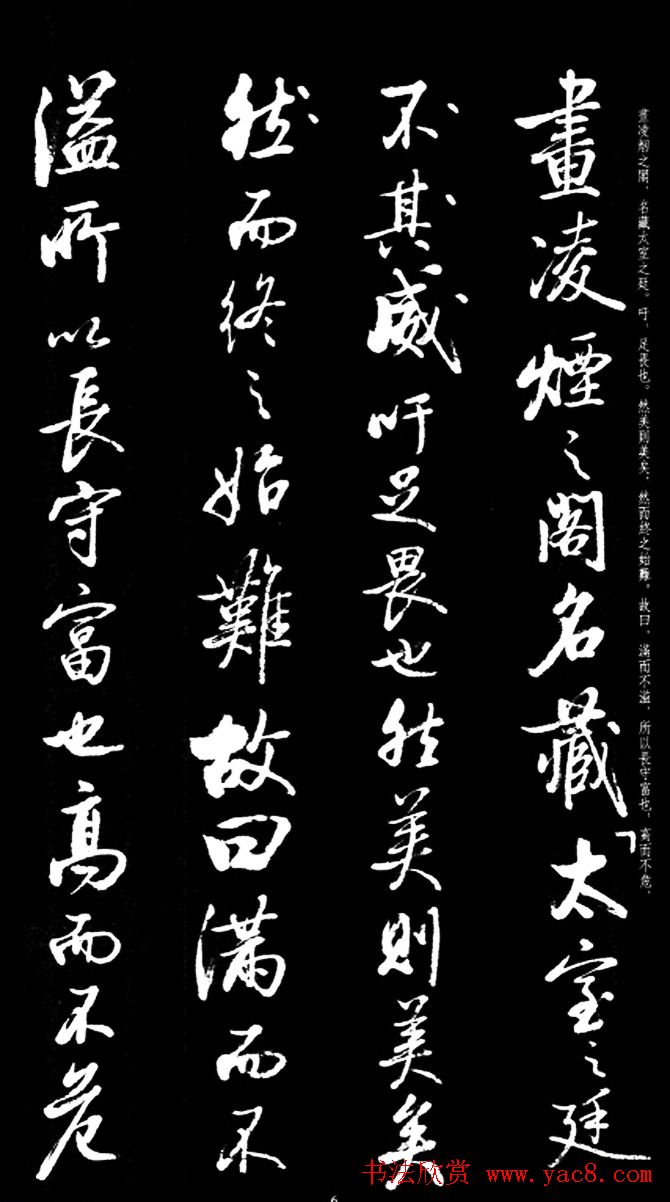 畫凌烟之閣，名藏太室之廷。吁，足畏也。然美則美矣，然而終之始難。故曰，滿而不溢，所以長守富也，高而不危，
畫凌煙之閣名藏太室之廷
不其威吁足畏也然美則美矣
然而終之始難故曰滿而不
溢所以長守富也高而不危
书法欣赏 www.yac8.com
6